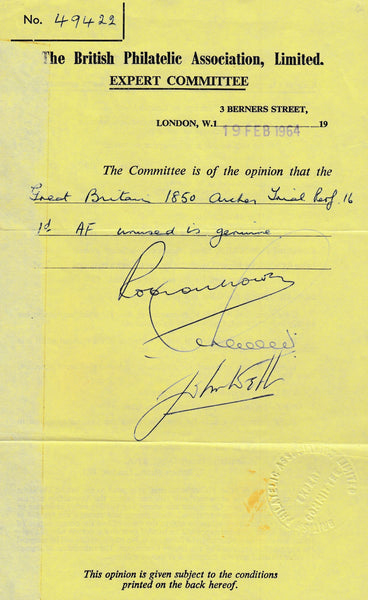 No. 49422
The British Philatelic Association, Limited.
EXPERT COMMITTEE
3 BERNERS STREET,
LONDON, W.1 19 FEB 1964 19
The Committee is of the opinion that the
Great Britain 1850 Archer Trial Perf. 16
1d AF unused is genuine
PHILATELIC ASSOCIATION LIMITED
EXPERT COMMITTEE
This opinion is given subject to the conditions
printed on the back hereof.